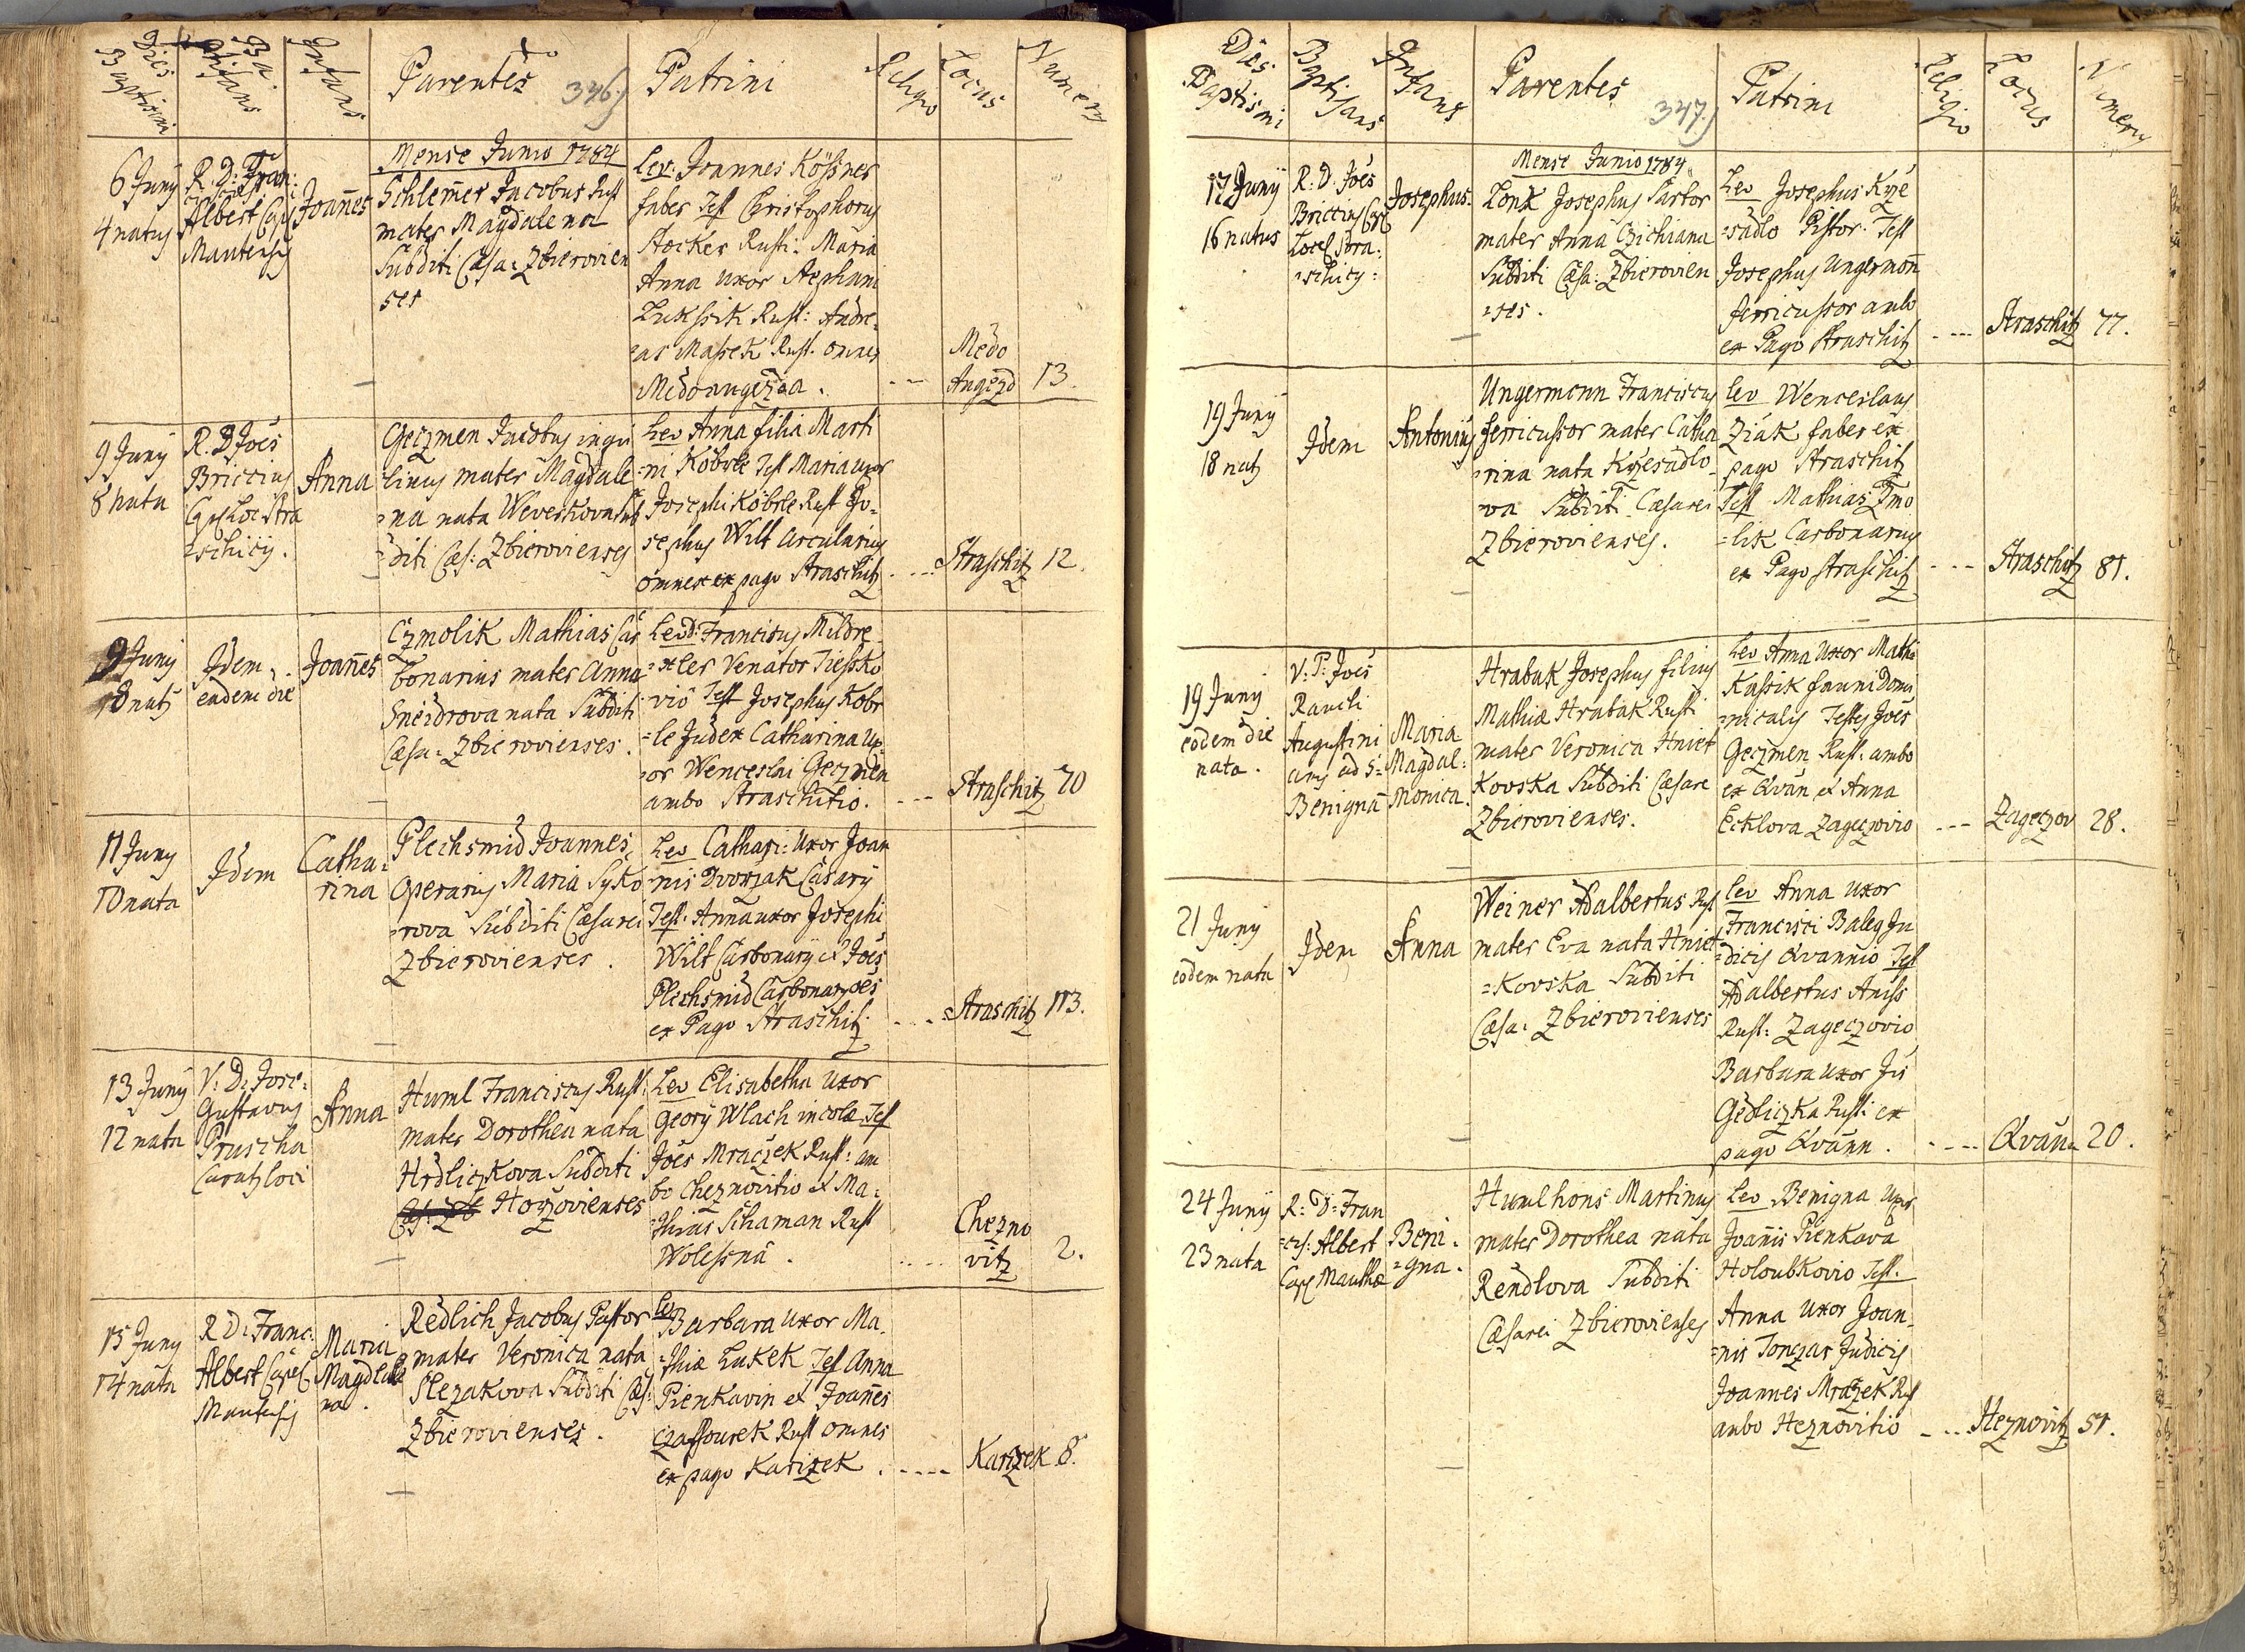 Dies Baptismi
Baptisans
Infans
Parentes
346
Patrini
Religio
Locus
Numerus
Mense Junio 1784
6 Juny
4 natus
R: D: Fran:
Albert Cap
Mautensis
Joannes
Schlemer Jacobus Rust
mater Magdalena
Subditi Cæsa: Zbirovien
ses
Lev: Joannes Kößner
faber Test Christophorus
Stocker Rusti: Maria
Anna uxor Stephani
Lukssik Rust: Andre:
as Massek Rust. omnes
Medoaugezda.
Medo
Augezd
13.
9 Juny
8 nata
R. D Joes
Briccius
Cap Loc Stra
schicij.
Anna
Geczmen Jacobus inqui
linus mater Magdale
na nata Weverkova Sub
diti Cæs: Zbierovienses
Lev Anna filia Marti
ni Köbrle Test Maria uxor
Josephi Köbrle Rust Jo-
sephus Wilt Arcularius
omnes ex pago Straschitz
Straschitz
12.
9 Juny
8 natus
Idem
eadem die
Joannes
Czmolik Mathias Car
bonarius mater Anna
Sneidrova nata Subditi
Cæsa: Zbierovienses.
Lev d: Franciscus Mildre
xler Venator Tiessko
vio Test Josephus Kobr
le Judex Catharina Ux:
or Wenceslai Geczmen
ambo Straschitio.
Straschitz
70
11 Juny
10 nata
Idem
Catha:
rina
Plechsmid Joannes
Operarius Maria Syko
rova Subditi Cæsarei
Zbierovienses.
Lev Cathari: Uxor Joan
nis Dworzak Casarij
Test: Anna uxor Josephi
Wilt Carbonarij et Joes
Plechsmid Carbonar oes
ex Pago Straschitz
Straschitz
113.
13 Juny
12 nata
V: D: Jose:
Gustavus
Pruscha
Curatus loci
Anna
Huml Franciscus Rust:
mater Dorothea nata
Hrdliczkova Subditi
Horzovienses
Lev Elisabetha uxor
Georij Wlach incolæ Test
Joes Mraczek Rust: am
bo Cheznovitio et Ma:
thias Schaman Rust
Wolessna.
Chezno
vitz
2.
15 Juny
14 nata
R D: Franc:
Albert Capel
Mautensis
Maria
Magdale
na.
Redlich Jacobus Pastor
mater Veronica nata
Slezakova Subditi Cæs:
Zbierovienses.
Lev Barbara uxor Ma.
thiæ Lukek Test Anna
Pienkavin et Joannes
Czassourek Rust omnes
ex pago Karizek.
Karizek
8.
Dies
Baptismi
Bapti
sans
Infans
Parentes
347
Patrini
Religio
Locus
Numeru
Mense Junio 1784
17 Junij
16 natus
R: D. Joes
Briccius Cap
Locel Stra:
schicij:
Josephus.
Zonk Josephus Sartor
mater Anna Czichiana
Subditi Cæsa: Zbierovien
ses.
Lev Josephus Krze
sadlo Pistor. Test
Josephus Ungermon
ferricussor ambo
ex Pago Straschitz
Straschitz
77.
19 Juny
18 nat
Idem
Antonius
Ungermonn Franciscus
ferricussor mater Catha
rina nata Krzesadlo
va Subditi Cæsarei
Zbierovienses.
Lev Wenceslaus
Ziak faber ex
pago Straschitz
Test Mathias Zmo
lik Carbonarius
ex Pago straschitz
Straschitz
81.
19 Juny
eodem die
nata.
V: P: Joes
Raucli
Augustini
anus ad S:
Benignã
Maria
Magdal:
Monica.
Hrabak Josephus filius
Mathiæ Hrabak Rusti
mater Veronica Hniet
kovska Subditi Cæsare
Zbierovienses.
Lev Anna Uxor Mathi
Kassik fauni Domi
nicalis Testes Joes
Geczmen Rust: ambo
ex Qvan et Anna
Ecklova Zageczovio
Zageczov
28.
21 Juny
eodem nata
Idem
Anna
Weiner Adalbertus Rus
mater Eva nata Hniet
kovska Subditi
Cæsa: Zbierovienses
Lev Anna uxor
Francisci Baleg Ju
dicis Qvannio Test
Adalbertus Aniss
Rust: Zageczovio
Barbara uxor Jis
Gedliczka Rusti ex
pago Qvann.
Qvann
20.
24 Junij
23 nata
R: D: Fran
cis: Albert
Cap Mauthæ
Beni:
gna.
Humlhons Martinus
mater Dorothea nata
Rendlova Subditi
Cæsarei Zbierovienses
Lev Benigna Uxor
Joanis Pienkava
Holoubkovio Test.
Anna uxor Joan
nis Tonczar Judicis
Joannes Mraczek Rus
ambo Heznovitio
Heznovitz
51.